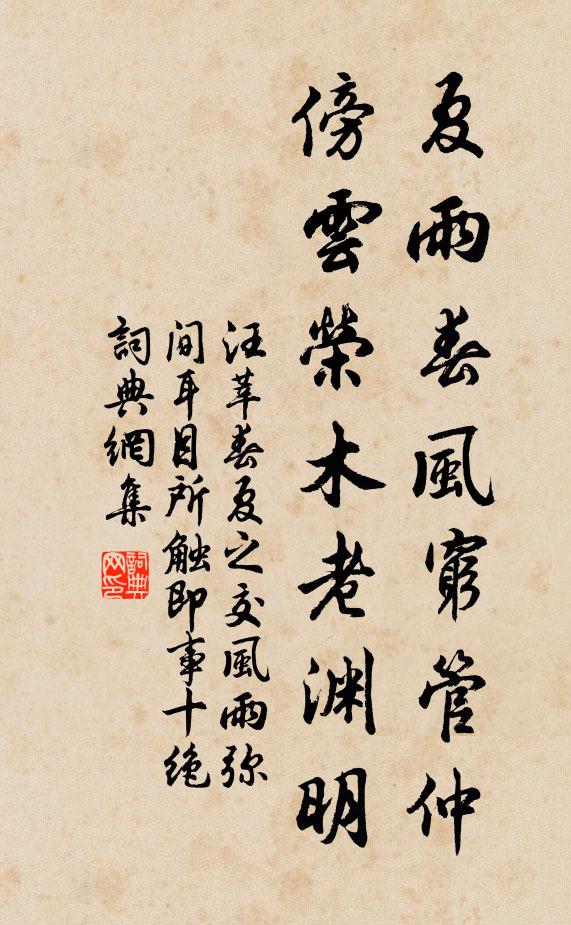 夏雨春風窮管仲
傍雲榮木老渊明
汪莘春夏之交風雨弥
间耳目所触即事十绝
詞典網集
詞典网印